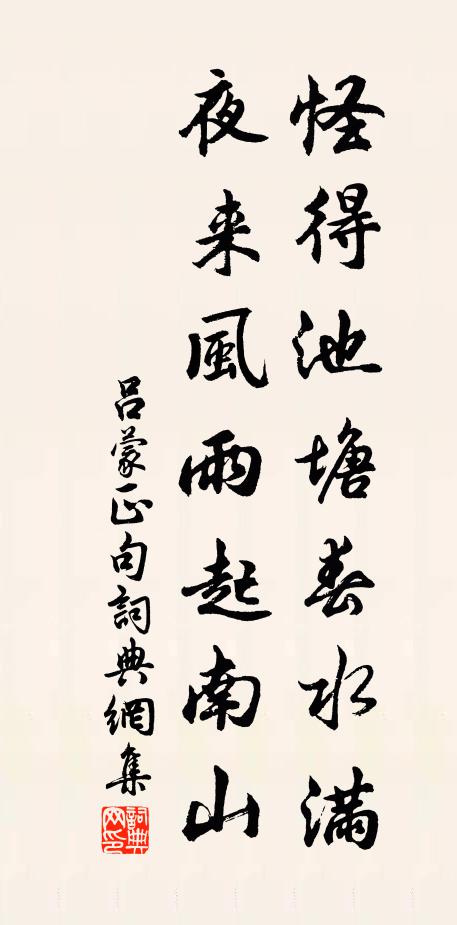 怪得池塘春水滿
夜来風雨起南山
呂蒙正句詞典網集
詞典網印